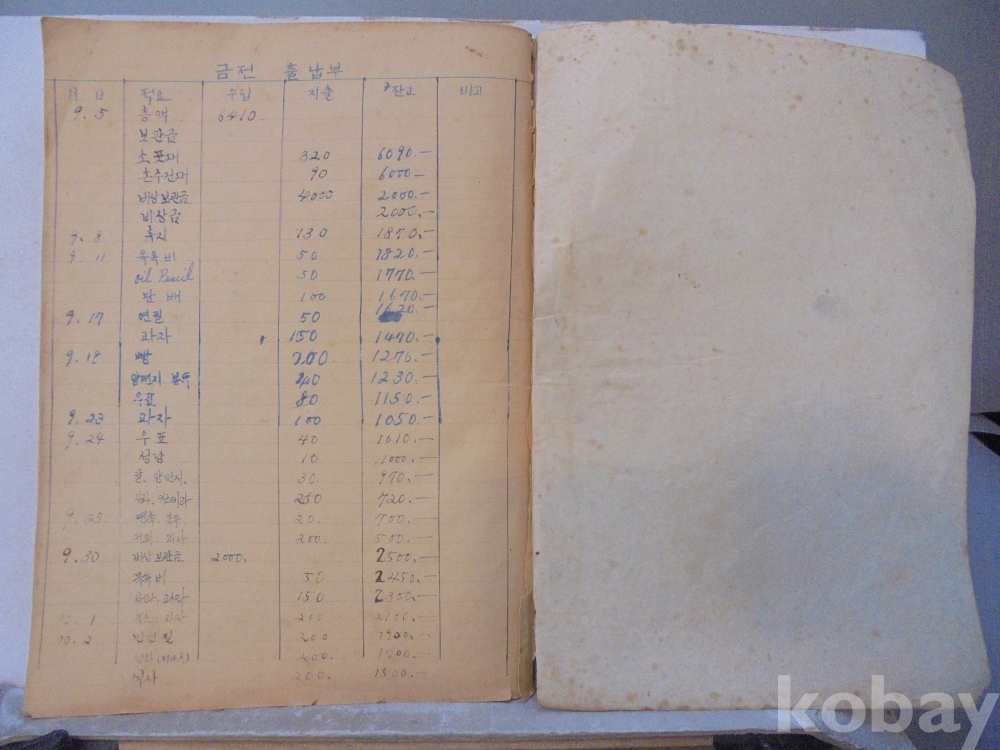 금전 출납부
月 日 적요 수입 지출 잔고 비고
9. 5 총액 6410.
보관금
320 6090.—
90 6000—
비상보관금 4000 2000.—
비상금 2000.—
9. 8 휴지 130 1870.—
9. 11 목욕비 50 1820.—
oil Pencil 50 1770.—
담배 100 1670.—
9. 17 연필 50 1620.—
과자 150 1470.—
9. 18 빵 200. 1270.—
40 1230.—
우표 80 1150.—
9. 23 과자 100 1050.—
9. 24 우표 40 1010.—
성냥 10 1000.—
30. 970.—
250 720.—
9. 25 20. 700.—
200. 500.—
9. 30 비상보관금 2000. 2500.—
목욕비 50 2450.—
사과.과자 150 2300.—
10. 1 과자 200 2100.—
10. 2 만년필 200 1900.—
200. 1700.—
식사 200. 1500.—
kobay